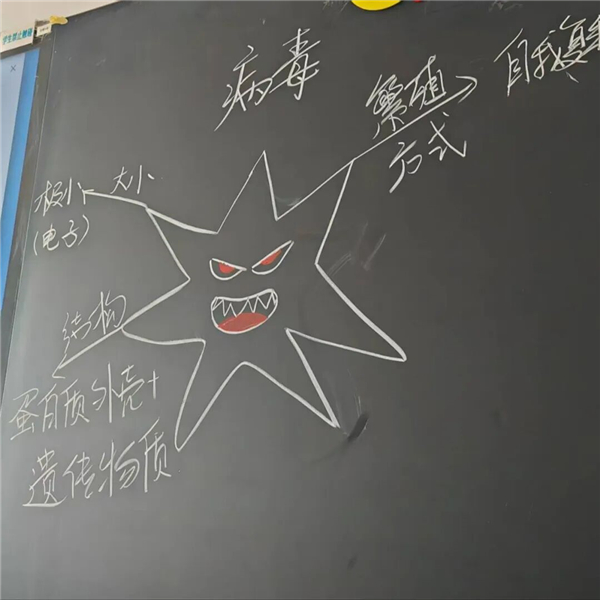 病毒
繁殖
方式
自我复
大小
极小
(电子)
结构
蛋白质外壳+
遗传物质